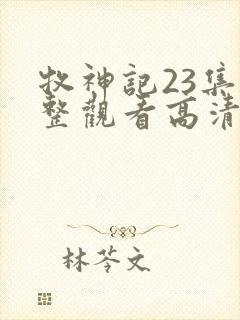 牧神記23集
整觀看高清
林苓文